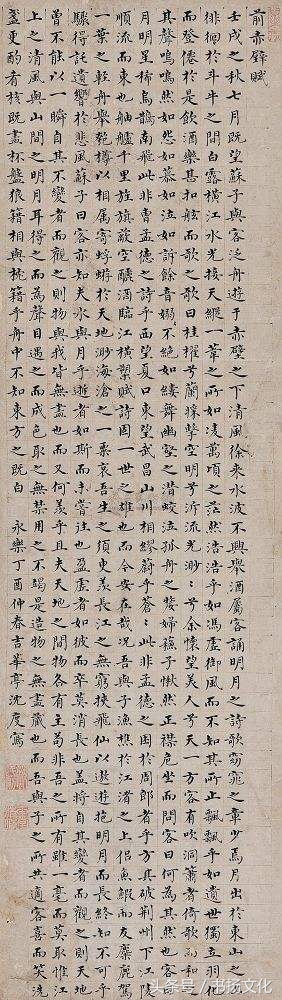 前赤壁賦
壬戌之秋七月既望蘇子與客泛舟遊于赤壁之下清風徐來水波不興舉酒屬客誦明月之詩歌窈窕之章少焉月出於東山之上
徘徊於斗牛之間白露橫江水光接天縱一葦之所如凌萬頃之茫然浩浩乎如馮虛御風而不知其所止飄飄乎如遺世獨立羽化
而登僊於是飲酒樂甚扣舷而歌之歌曰桂櫂兮蘭槳擊空明兮泝流光渺〻兮余懷望美人兮天一方客有吹洞簫者倚歌而和之
其聲嗚嗚然如怨如慕如泣如訴餘音嫋〻不絕如縷舞幽壑之潛蛟泣孤舟之嫠婦蘇子愀然正襟危坐而問客曰何為其然也客曰
月明星稀烏鵲南飛此非曹孟德之詩乎西望夏口東望武昌山川相繆鬱乎蒼〻此非孟德之困於周郎者乎方其破荊州下江陵
順流而東也舳艫千里旌旗蔽空釃酒臨江橫槊賦詩固一世之雄也而今安在哉況吾與子漁樵於江渚之上侶魚鰕而友麋鹿駕
一葉之輕舟舉匏樽以相屬寄蜉蝣於天地渺海滄之一粟哀吾生之須臾羨長江之無窮挾飛仙以遨遊抱明月而長終知不可乎
驟得託遺響於悲風蘇子曰客亦知夫水與月乎逝者如斯而未嘗往也盈虛者如彼而卒莫消長也蓋將自其變者而觀之則天地
曾不能以一瞬自其不變者而觀之則物與我皆無盡也而又何羨乎且夫天地之間物各有主苟非吾之所有雖一毫而莫取惟江
上之清風與山間之明月耳得之而為聲目遇之而成色取之無禁用之不竭是造物之無盡藏也而吾與子之所共適客喜而笑洗
盞更酌肴核既盡杯盤狼籍相與枕籍乎舟中不知東方之既白 永樂丁酉仲春吉華亭沈度寫
头条号 / 书扬文化